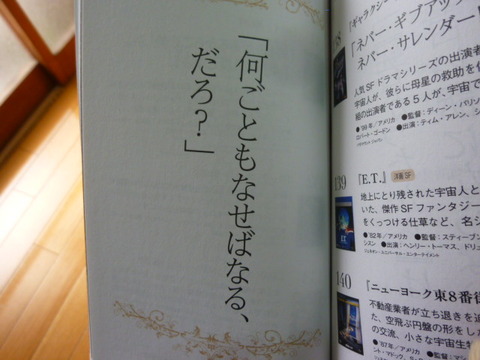 「何ごともなせばなる、
だろ?」
『ギャラクシー
「ネバー・ギブアッ
ネバー・サレンダー
人気SFドラマシリーズの出演者
宇宙人が、彼らに母星の救助を
組の出演者である5人が、宇宙で
●'99年/アメリカ ●監督:ディーン・パリソ
●出演:ティム・アレン、シ
139
『E.T.』
洋画SF
地上にとり残された宇宙人と
いた、傑作SFファンタジー
をくっつける仕草など、名シ
●'82年/アメリカ ●監督:スティーブン
●出演:ヘンリー・トーマス、ドリュ
140
『ニューヨーク東8番街
不動産業者が立ち退きを迫
た、空飛ぶ円盤の形をした
の交流、小さな宇宙生物
●'87年/アメリカ